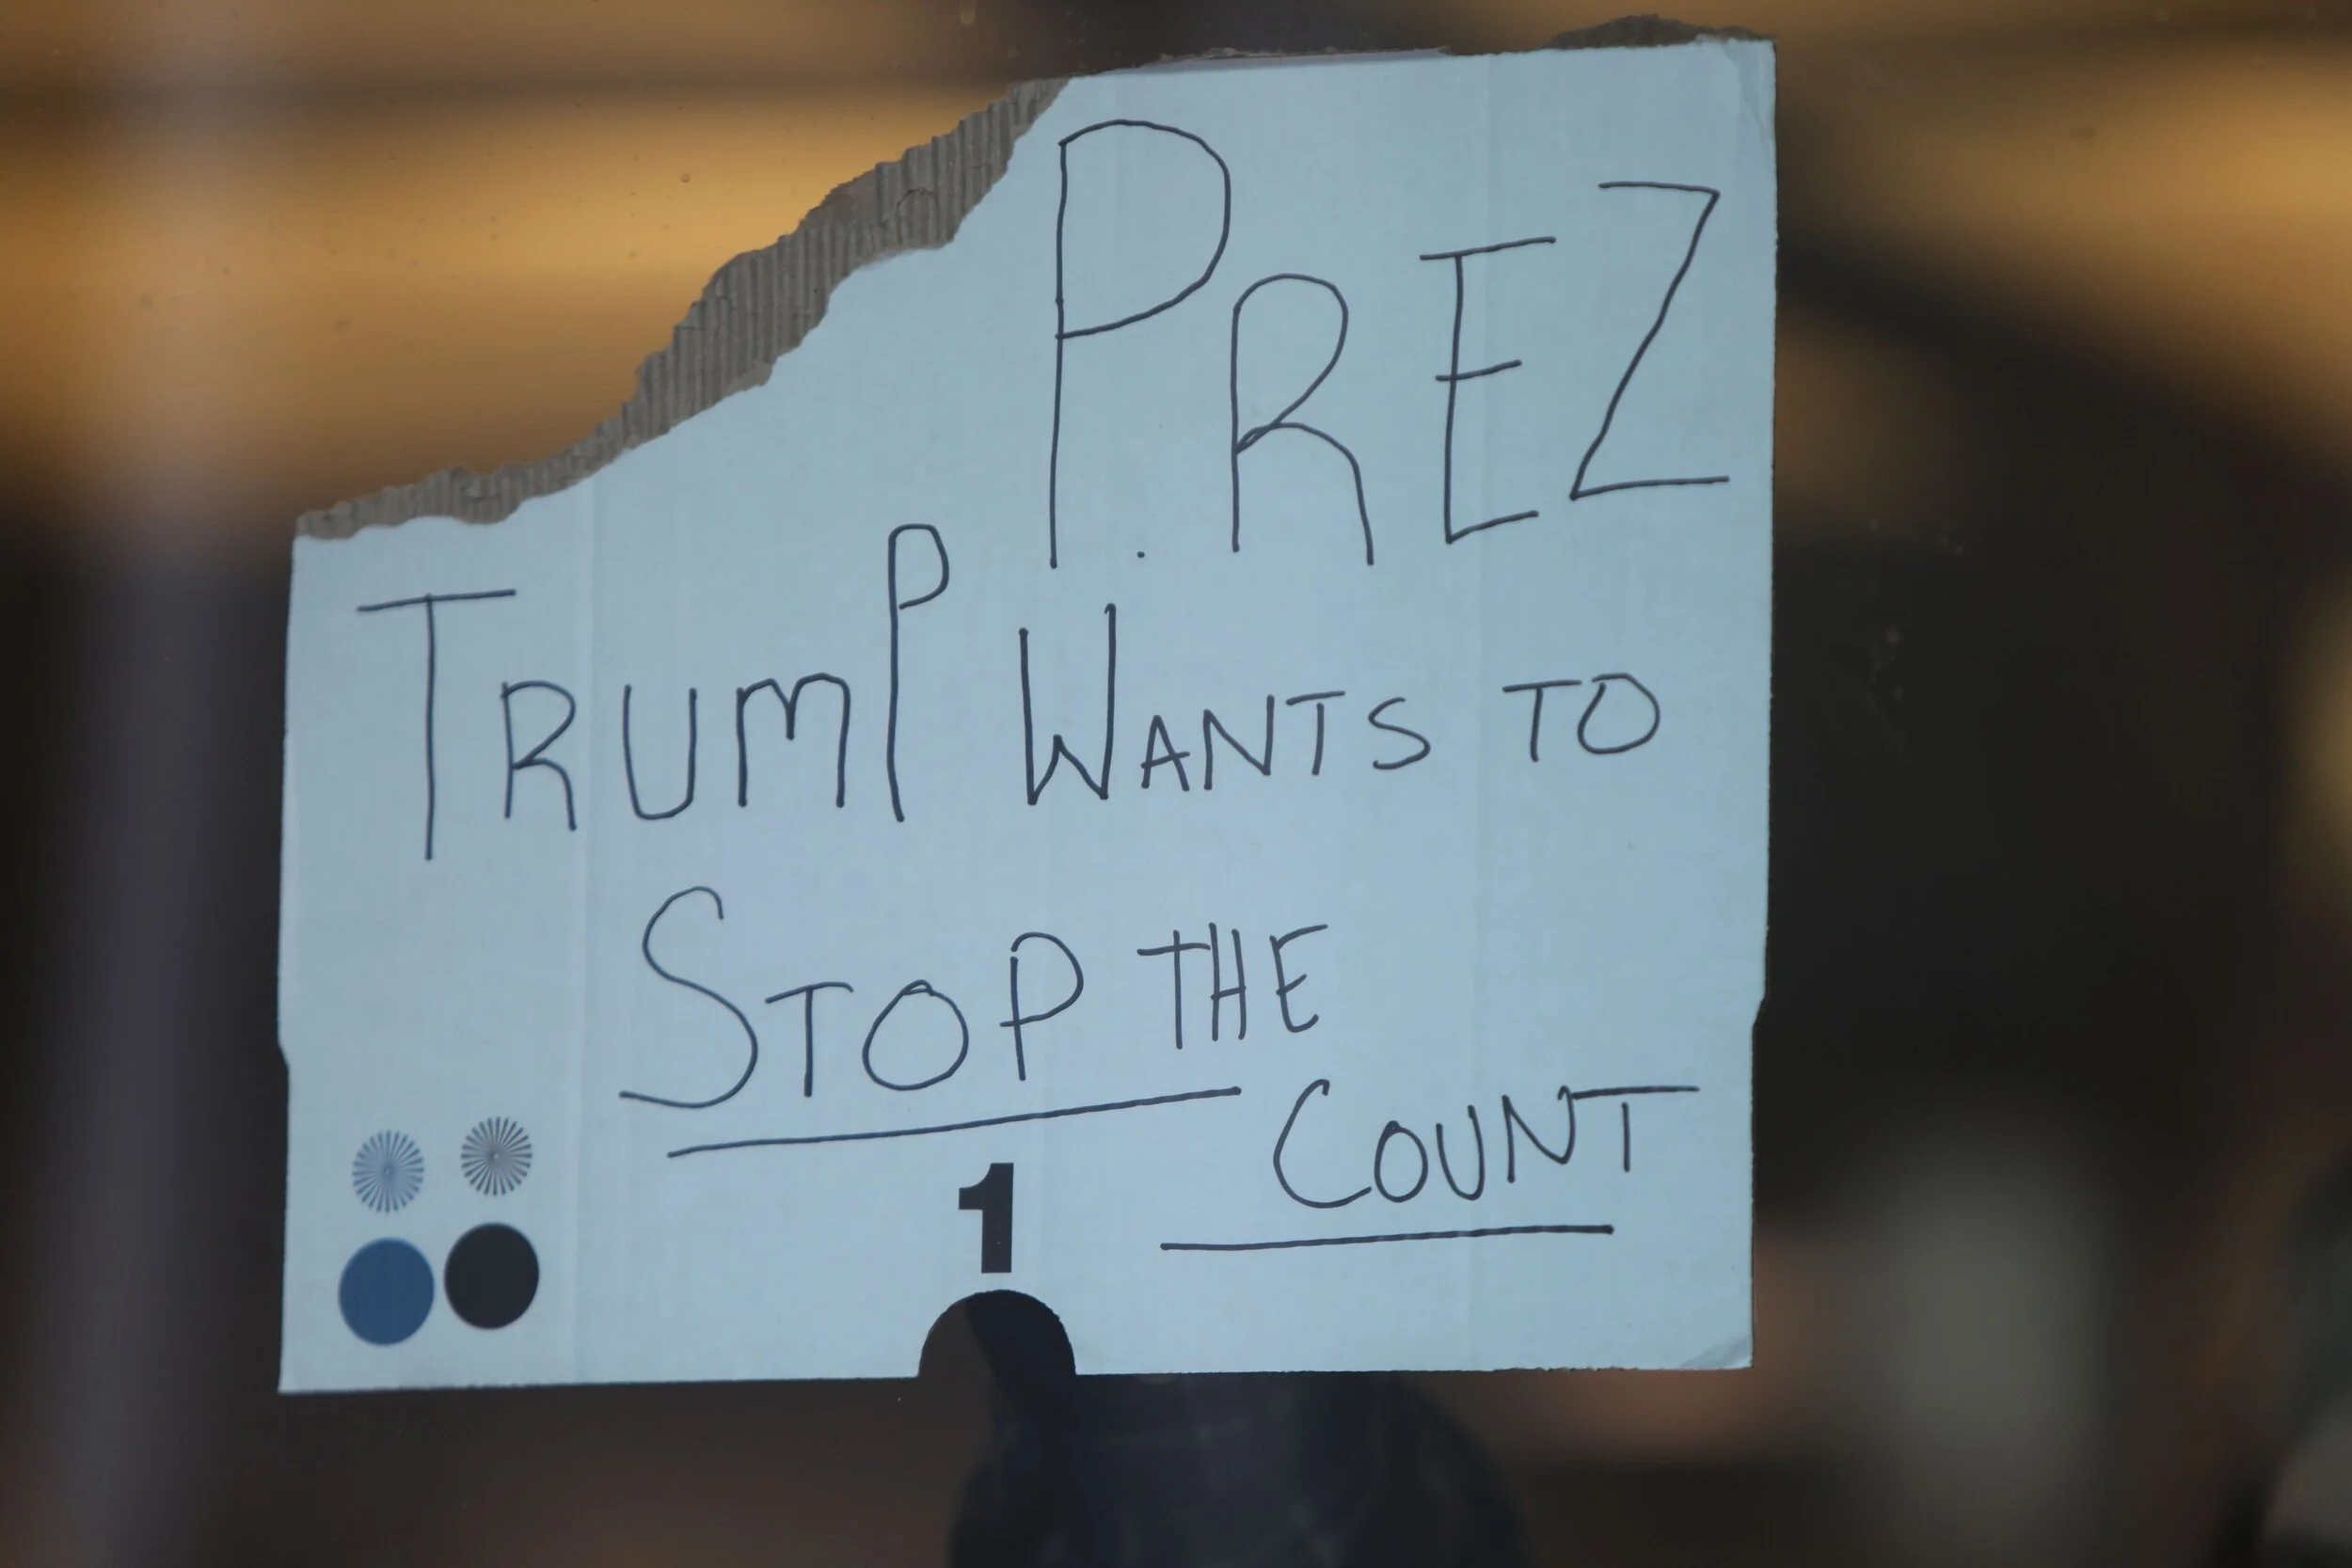 P.REZ
TRUMP WANTS TO
STOP THE
COUNT
1